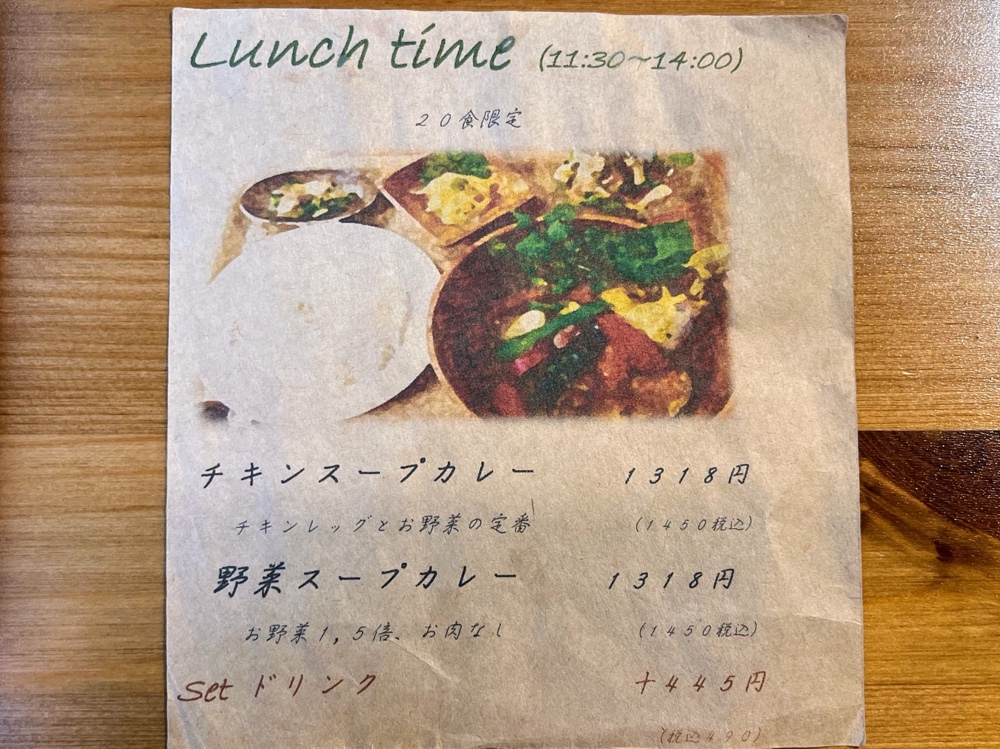 Lunch time (11:30~14:00)
20食限定
チキンスープカレー 1318円
チキンレッグとお野菜の定番 (1450税込)
野菜スープカレー 1318円
お野菜1,5倍、お肉なし (1450税込)
Set ドリンク +445円
(税込490)